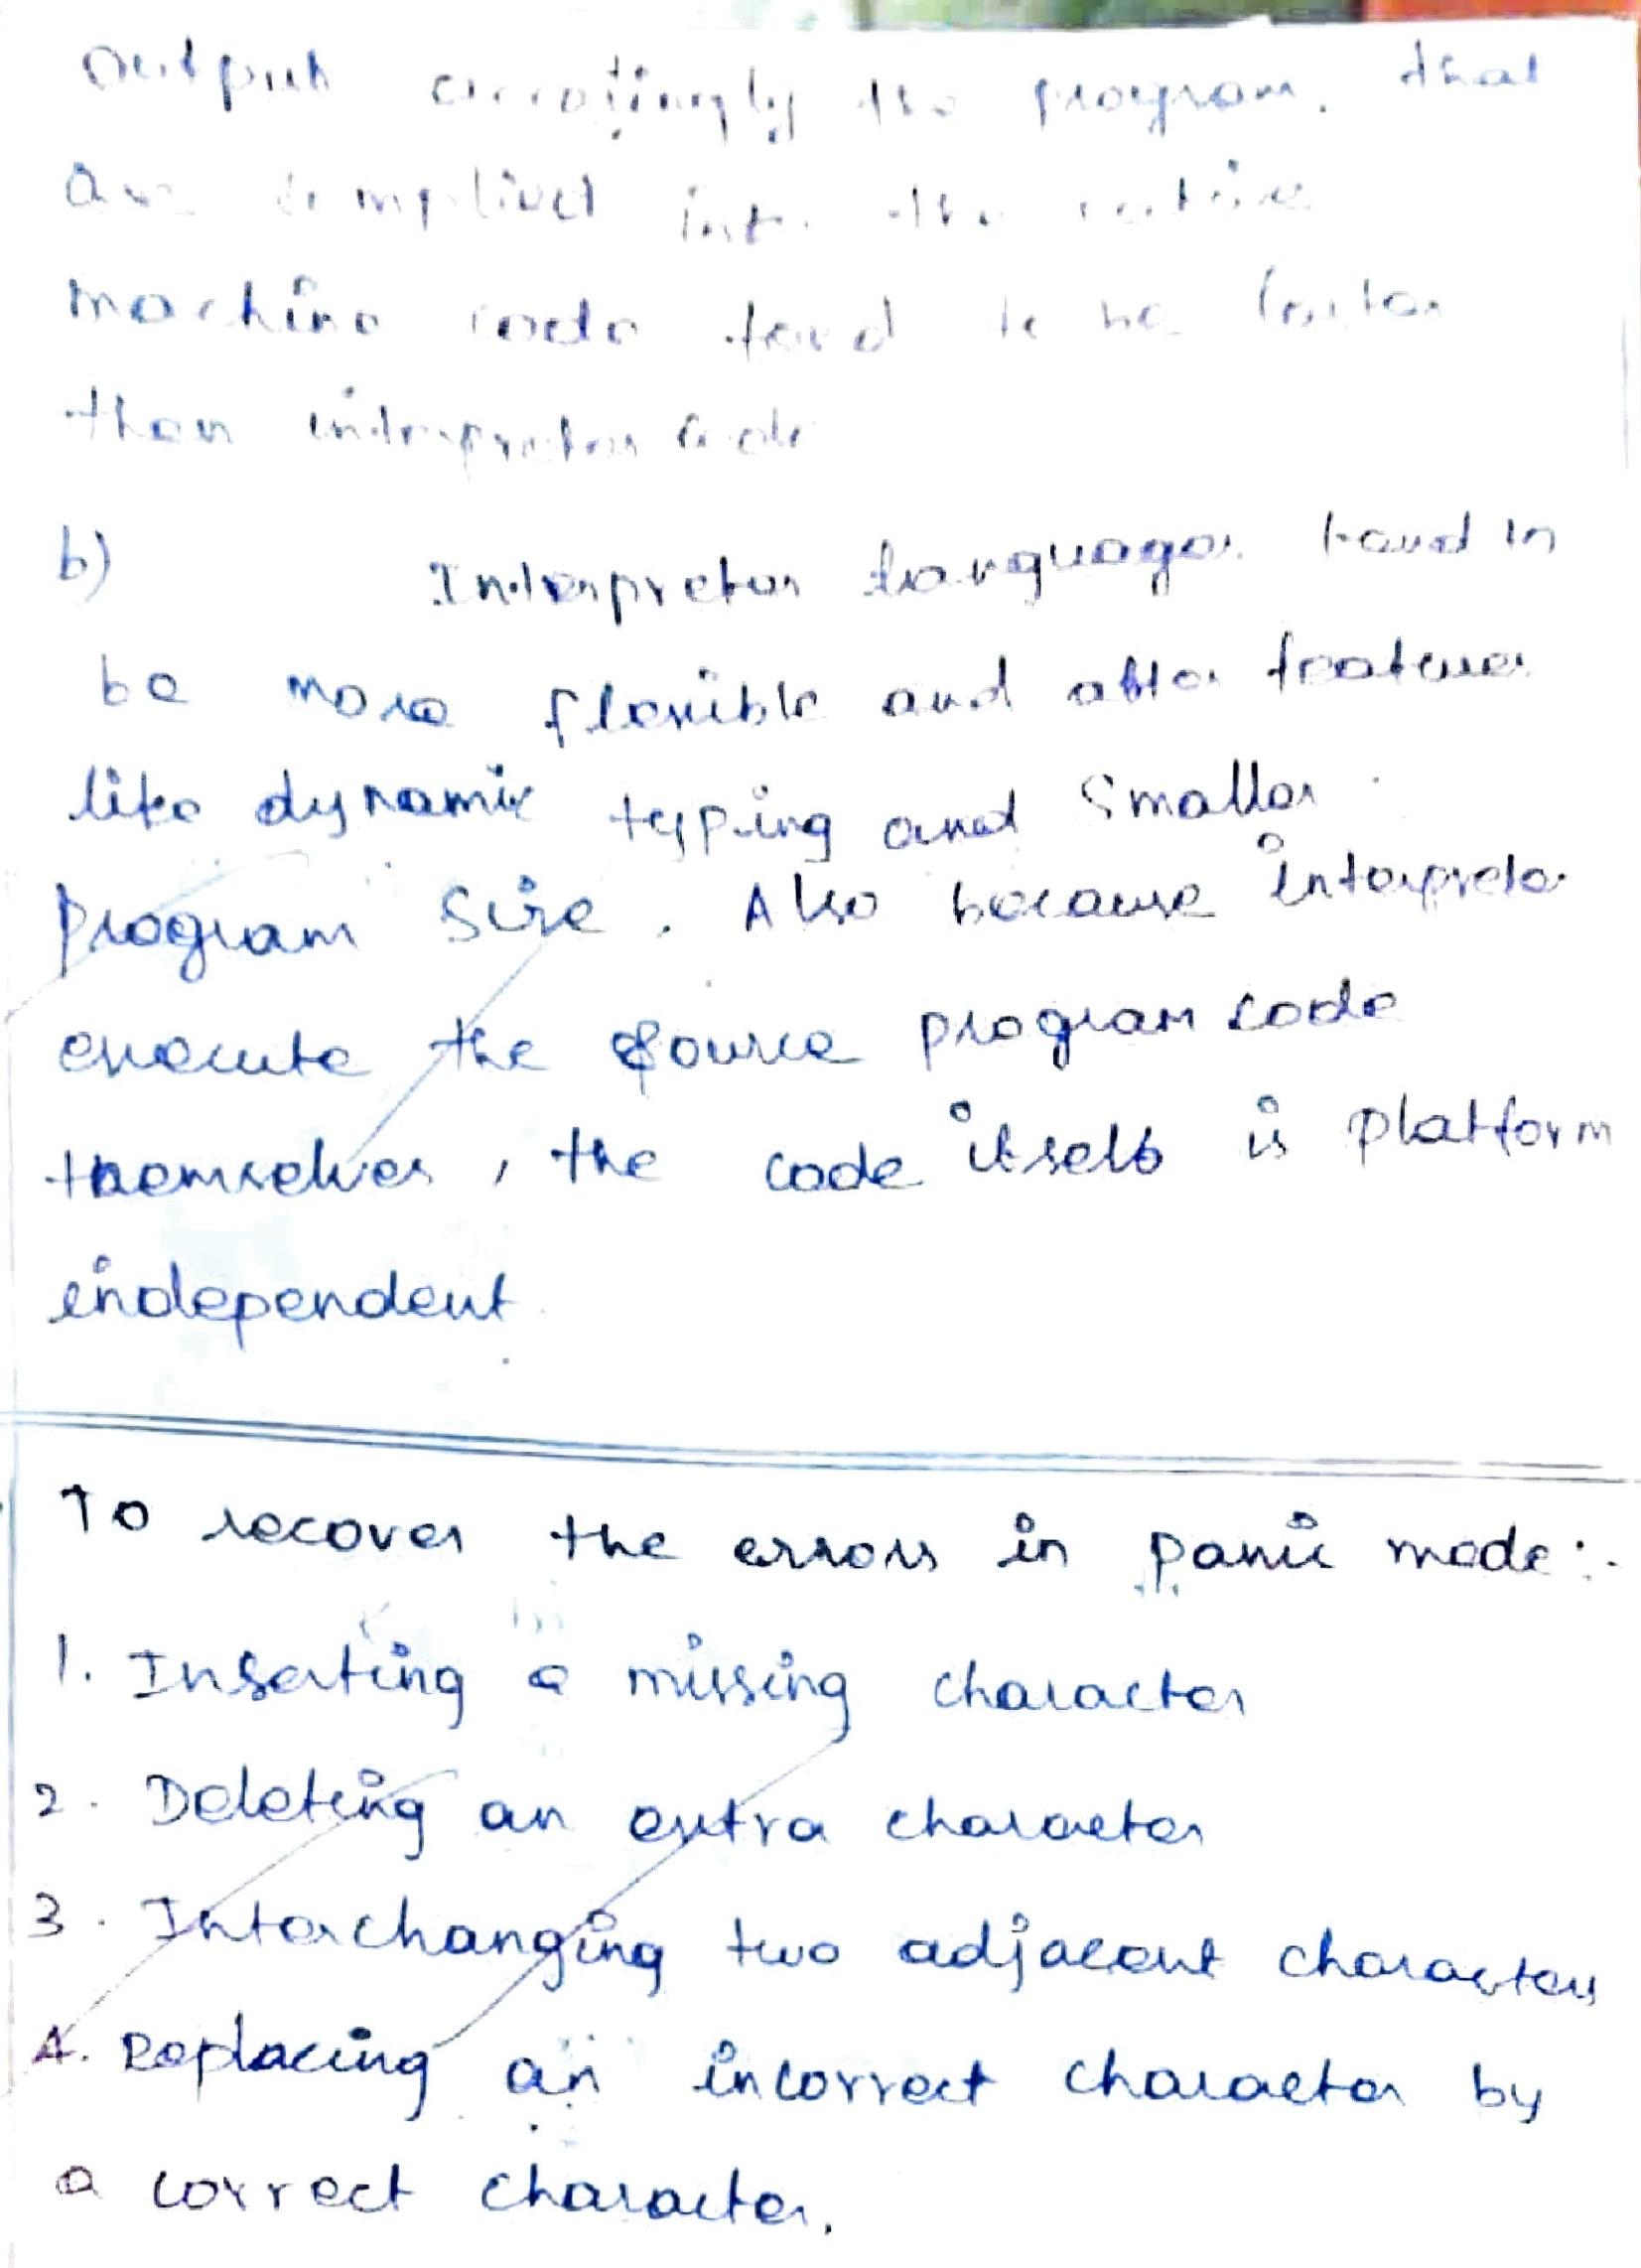 output accrotingly the program. that
are complived into the native
machine code tend to be faster
than interpretor code
b) Interpretor languages tend in
be more flexible and offer features
like dynamic typing and Smaller
program Size. Also because interpreter
execute the source program code
themselves, the code itself is platform
independent.
To recover the errors in panic mode:-
1. Inserting a missing character
2. Deleting an extra character
3. Interchanging two adjacent characters
4. Replacing an incorrect character by
a correct character.